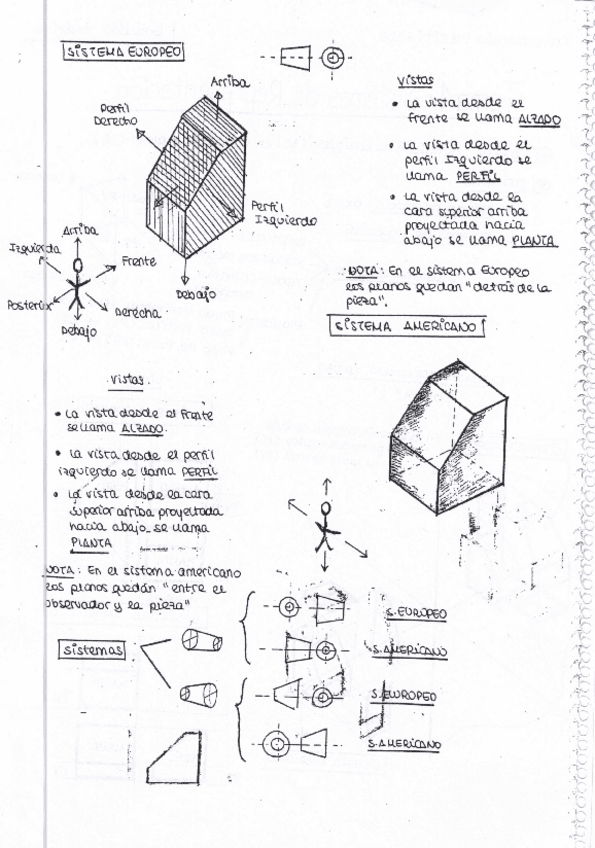 SISTEMA EUROPEO
Arriba
Perfil
Derecho
Perfil
Izquierdo
Debajo
Arriba
Izquierda
Frente
Posterior
Derecha
Debajo
Vistas
• La vista desde el
frente se llama ALZADO
• La vista desde el
perfil Izquierdo se
llama PERFIL
• La vista desde la
cara superior arriba
proyectada hacia
abajo se llama PLANTA
NOTA: En el sistema Europeo
los planos quedan "detrás de la
pieza".
SISTEMA AMERICANO
Vistas
• La vista desde el frente
se llama ALZADO.
• La vista desde el perfil
izquierdo se llama PERFIL
• La vista desde la cara
superior arriba proyectada
hacia abajo se llama
PLANTA
NOTA: En el sistema americano
los planos quedan "entre el
observador y la pieza"
sistemas
S. EUROPEO
S. AMERICANO
S. EUROPEO
S. AMERICANO